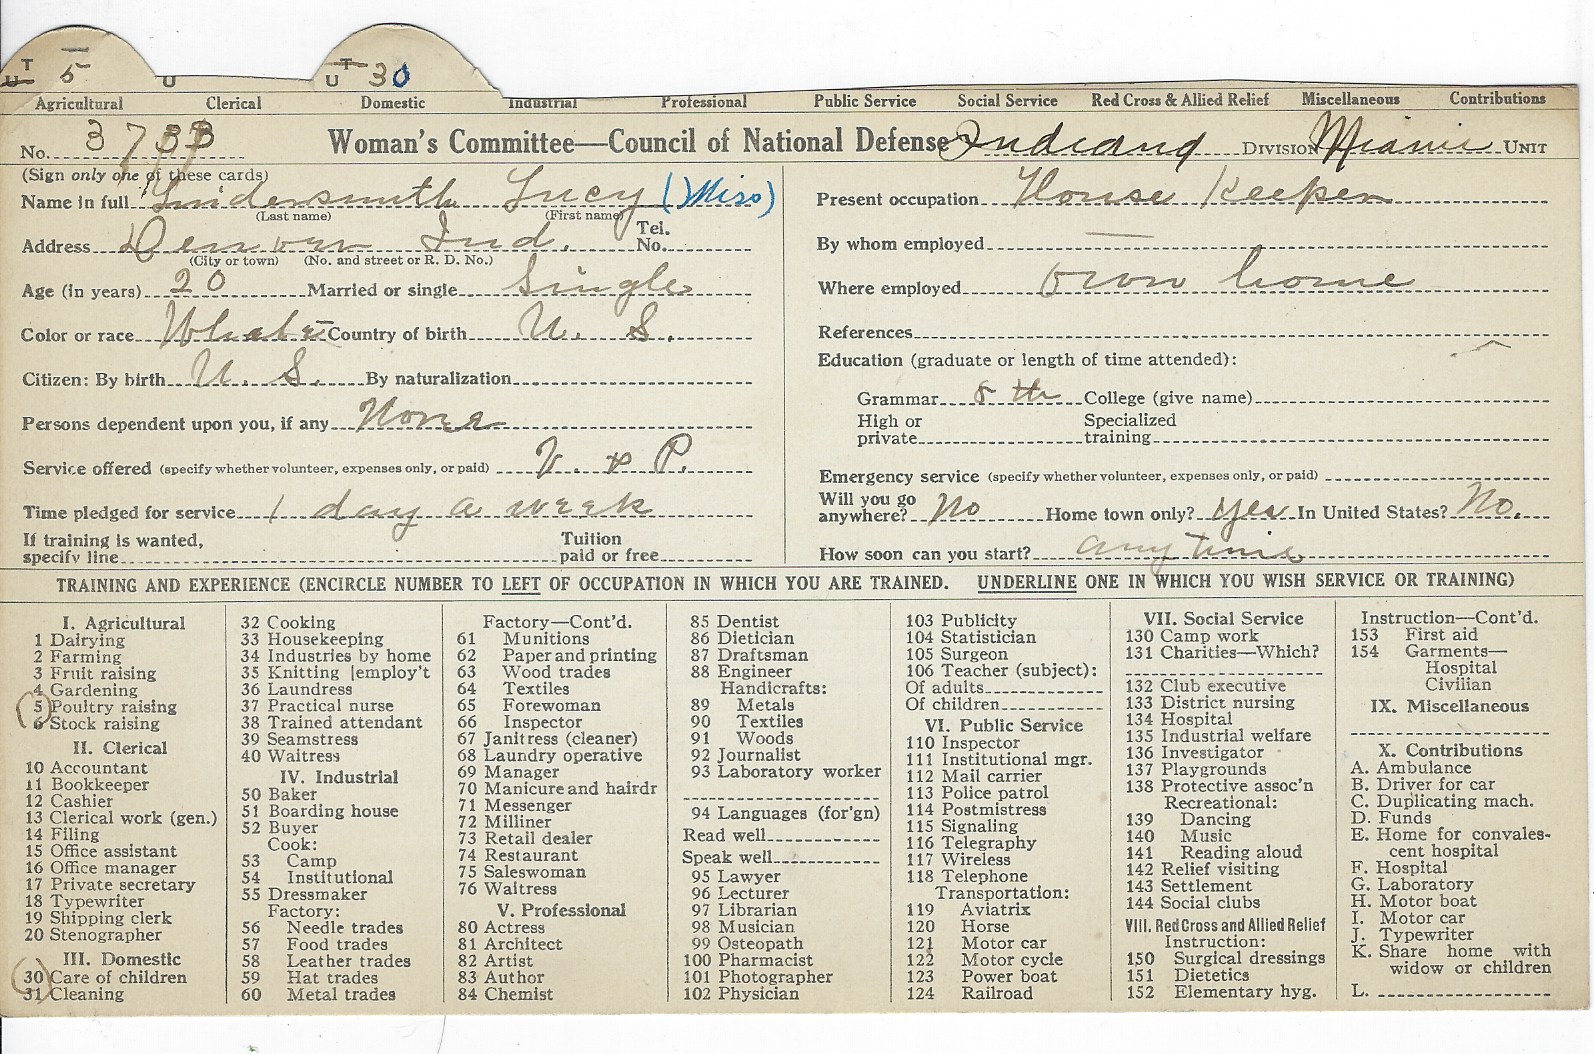 T
U 5
U
T
U 30
Agricultural Clerical Domestic Industrial Professional Public Service Social Service Red Cross & Allied Relief Miscellaneous Contributions
No. 373
Woman's Committee—Council of National Defense Indiana DIVISION Miami UNIT
(Sign only one of these cards)
Name in full Lindersmith Lucy (Miss)
(Last name) (First name)
Address Denver Ind. Tel. No.
(City or town) (No. and street or R. D. No.)
Age (in years) 20 Married or single Single
Color or race White Country of birth U. S.
Citizen: By birth U. S. By naturalization
Persons dependent upon you, if any None
Service offered (specify whether volunteer, expenses only, or paid) V. & P.
Time pledged for service 1 day a week
If training is wanted, specify line Tuition paid or free
Present occupation House Keeper
By whom employed —
Where employed own home
References
Education (graduate or length of time attended):
Grammar 8 th College (give name)
High or private Specialized training
Emergency service (specify whether volunteer, expenses only, or paid)
Will you go anywhere? No Home town only? Yes In United States? No.
How soon can you start? any time
TRAINING AND EXPERIENCE (ENCIRCLE NUMBER TO LEFT OF OCCUPATION IN WHICH YOU ARE TRAINED. UNDERLINE ONE IN WHICH YOU WISH SERVICE OR TRAINING)
I. Agricultural
1 Dairying
2 Farming
3 Fruit raising
4 Gardening
5 Poultry raising
6 Stock raising
II. Clerical
10 Accountant
11 Bookkeeper
12 Cashier
13 Clerical work (gen.)
14 Filing
15 Office assistant
16 Office manager
17 Private secretary
18 Typewriter
19 Shipping clerk
20 Stenographer
III. Domestic
30 Care of children
31 Cleaning
32 Cooking
33 Housekeeping
34 Industries by home
35 Knitting [employ't
36 Laundress
37 Practical nurse
38 Trained attendant
39 Seamstress
40 Waitress
IV. Industrial
50 Baker
51 Boarding house
52 Buyer
Cook:
53 Camp
54 Institutional
55 Dressmaker
Factory:
56 Needle trades
57 Food trades
58 Leather trades
59 Hat trades
60 Metal trades
Factory—Cont'd.
61 Munitions
62 Paper and printing
63 Wood trades
64 Textiles
65 Forewoman
66 Inspector
67 Janitress (cleaner)
68 Laundry operative
69 Manager
70 Manicure and hairdr
71 Messenger
72 Milliner
73 Retail dealer
74 Restaurant
75 Saleswoman
76 Waitress
V. Professional
80 Actress
81 Architect
82 Artist
83 Author
84 Chemist
85 Dentist
86 Dietician
87 Draftsman
88 Engineer
Handicrafts:
89 Metals
90 Textiles
91 Woods
92 Journalist
93 Laboratory worker
94 Languages (for'gn)
Read well
Speak well
95 Lawyer
96 Lecturer
97 Librarian
98 Musician
99 Osteopath
100 Pharmacist
101 Photographer
102 Physician
103 Publicity
104 Statistician
105 Surgeon
106 Teacher (subject):
Of adults
Of children
VI. Public Service
110 Inspector
111 Institutional mgr.
112 Mail carrier
113 Police patrol
114 Postmistress
115 Signaling
116 Telegraphy
117 Wireless
118 Telephone
Transportation:
119 Aviatrix
120 Horse
121 Motor car
122 Motor cycle
123 Power boat
124 Railroad
VII. Social Service
130 Camp work
131 Charities—Which?
132 Club executive
133 District nursing
134 Hospital
135 Industrial welfare
136 Investigator
137 Playgrounds
138 Protective assoc'n
Recreational:
139 Dancing
140 Music
141 Reading aloud
142 Relief visiting
143 Settlement
144 Social clubs
VIII. Red Cross and Allied Relief
Instruction:
150 Surgical dressings
151 Dietetics
152 Elementary hyg.
Instruction—Cont'd.
153 First aid
154 Garments—
Hospital
Civilian
IX. Miscellaneous
X. Contributions
A. Ambulance
B. Driver for car
C. Duplicating mach.
D. Funds
E. Home for convales-
cent hospital
F. Hospital
G. Laboratory
H. Motor boat
I. Motor car
J. Typewriter
K. Share home with
widow or children
L.